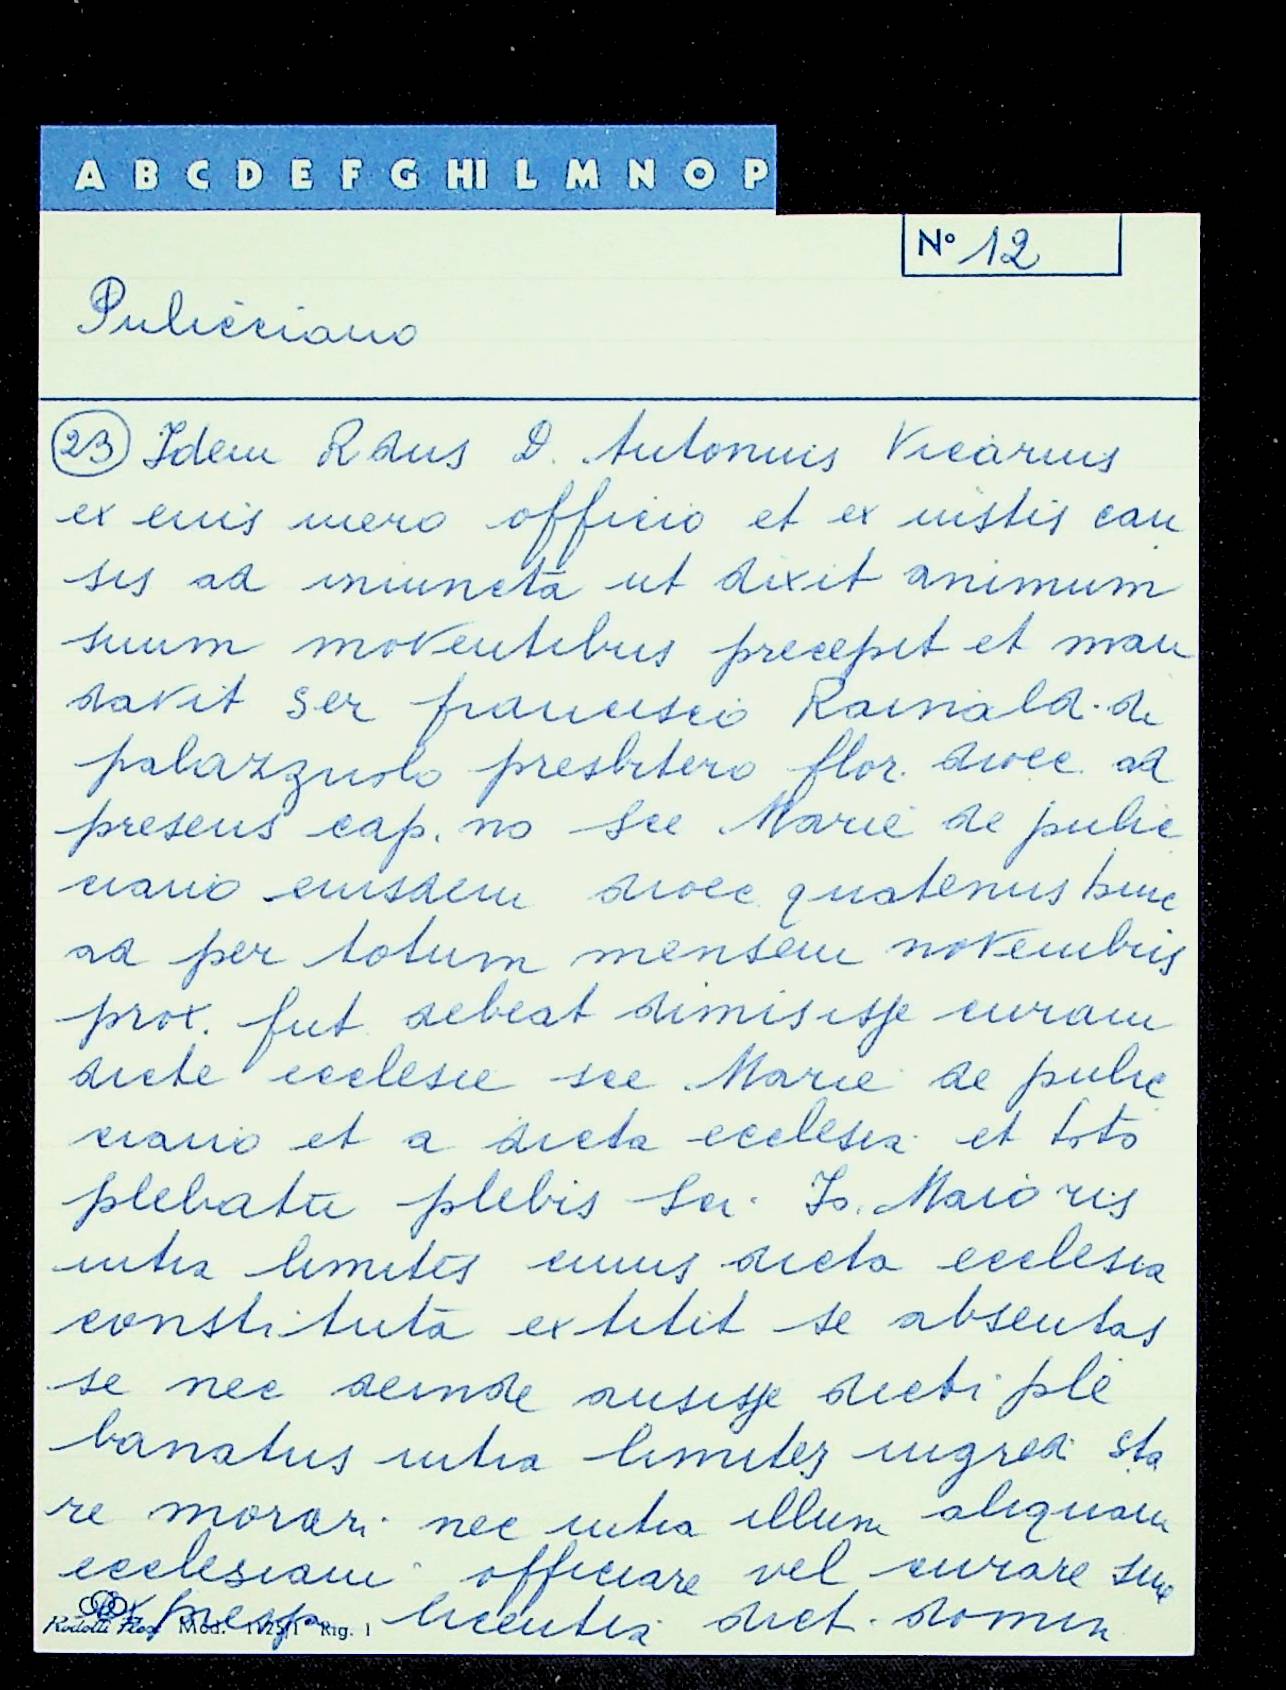 A B C D E F G HI L M N O P
N° 12
Pulicciano
23 Idem Rdus D. Antonius Vicarius
ex eius mero officio et ex iustis cau
sis ad iniuncta ut dixit animum
suum moventibus precepit et man
davit ser francisco Rainald. de
palazzuolo presbitero flor. dioec. ad
presens cap. no Sce Marie de pulic
ciano eiusdem dioec. quatenus hinc
ad per totum mensem novembris
prox. fut. debeat dimisisse curam
dicte ecclesie sce Marie de pulic
ciano et a dicta ecclesia et toto
plebatu plebis Sci. Jo. Maioris
intra limites cuius dicta ecclesia
constituta extitit se absentas
se nec deinde ausisse dicti ple
banatus intra limites ingredi sta
re morari nec intra illum aliquam
ecclesiam officiare vel curare sine
expressa licentia dict. domin
Rodolfi Flex Mod. Rig. 1